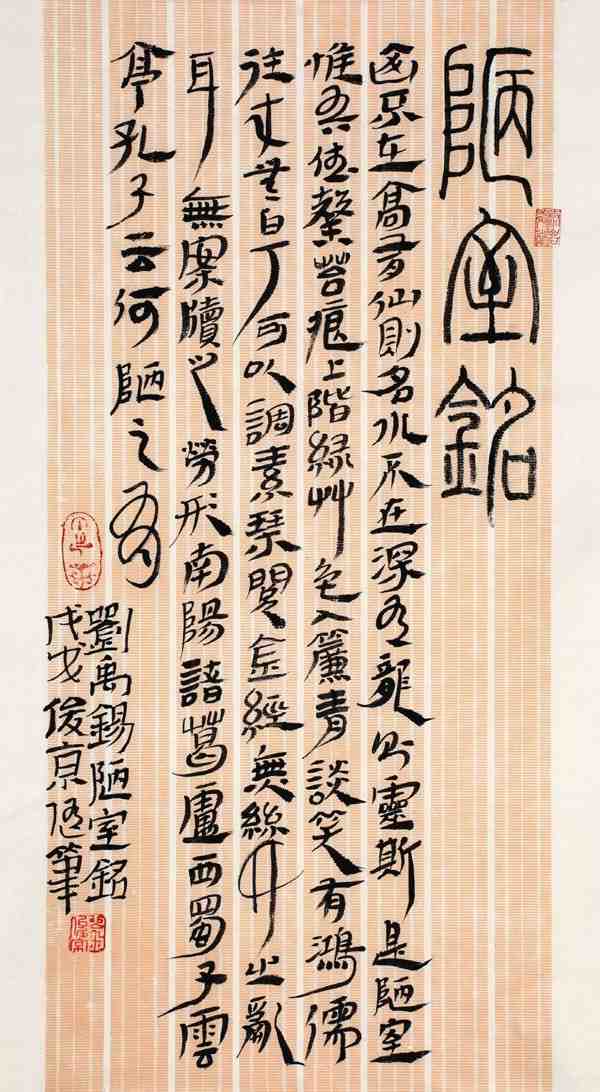 陋室銘
山不在高有仙則名水不在深有龍則靈斯是陋室
惟吾德馨苔痕上階緑艸色入簾青談笑有鴻儒
往來無白丁可以調素琴閱金經無絲竹之亂
耳無案牘之勞形南陽諸葛廬西蜀子雲
亭孔子云何陋之有
劉禹錫陋室銘
戊戌俊京筆